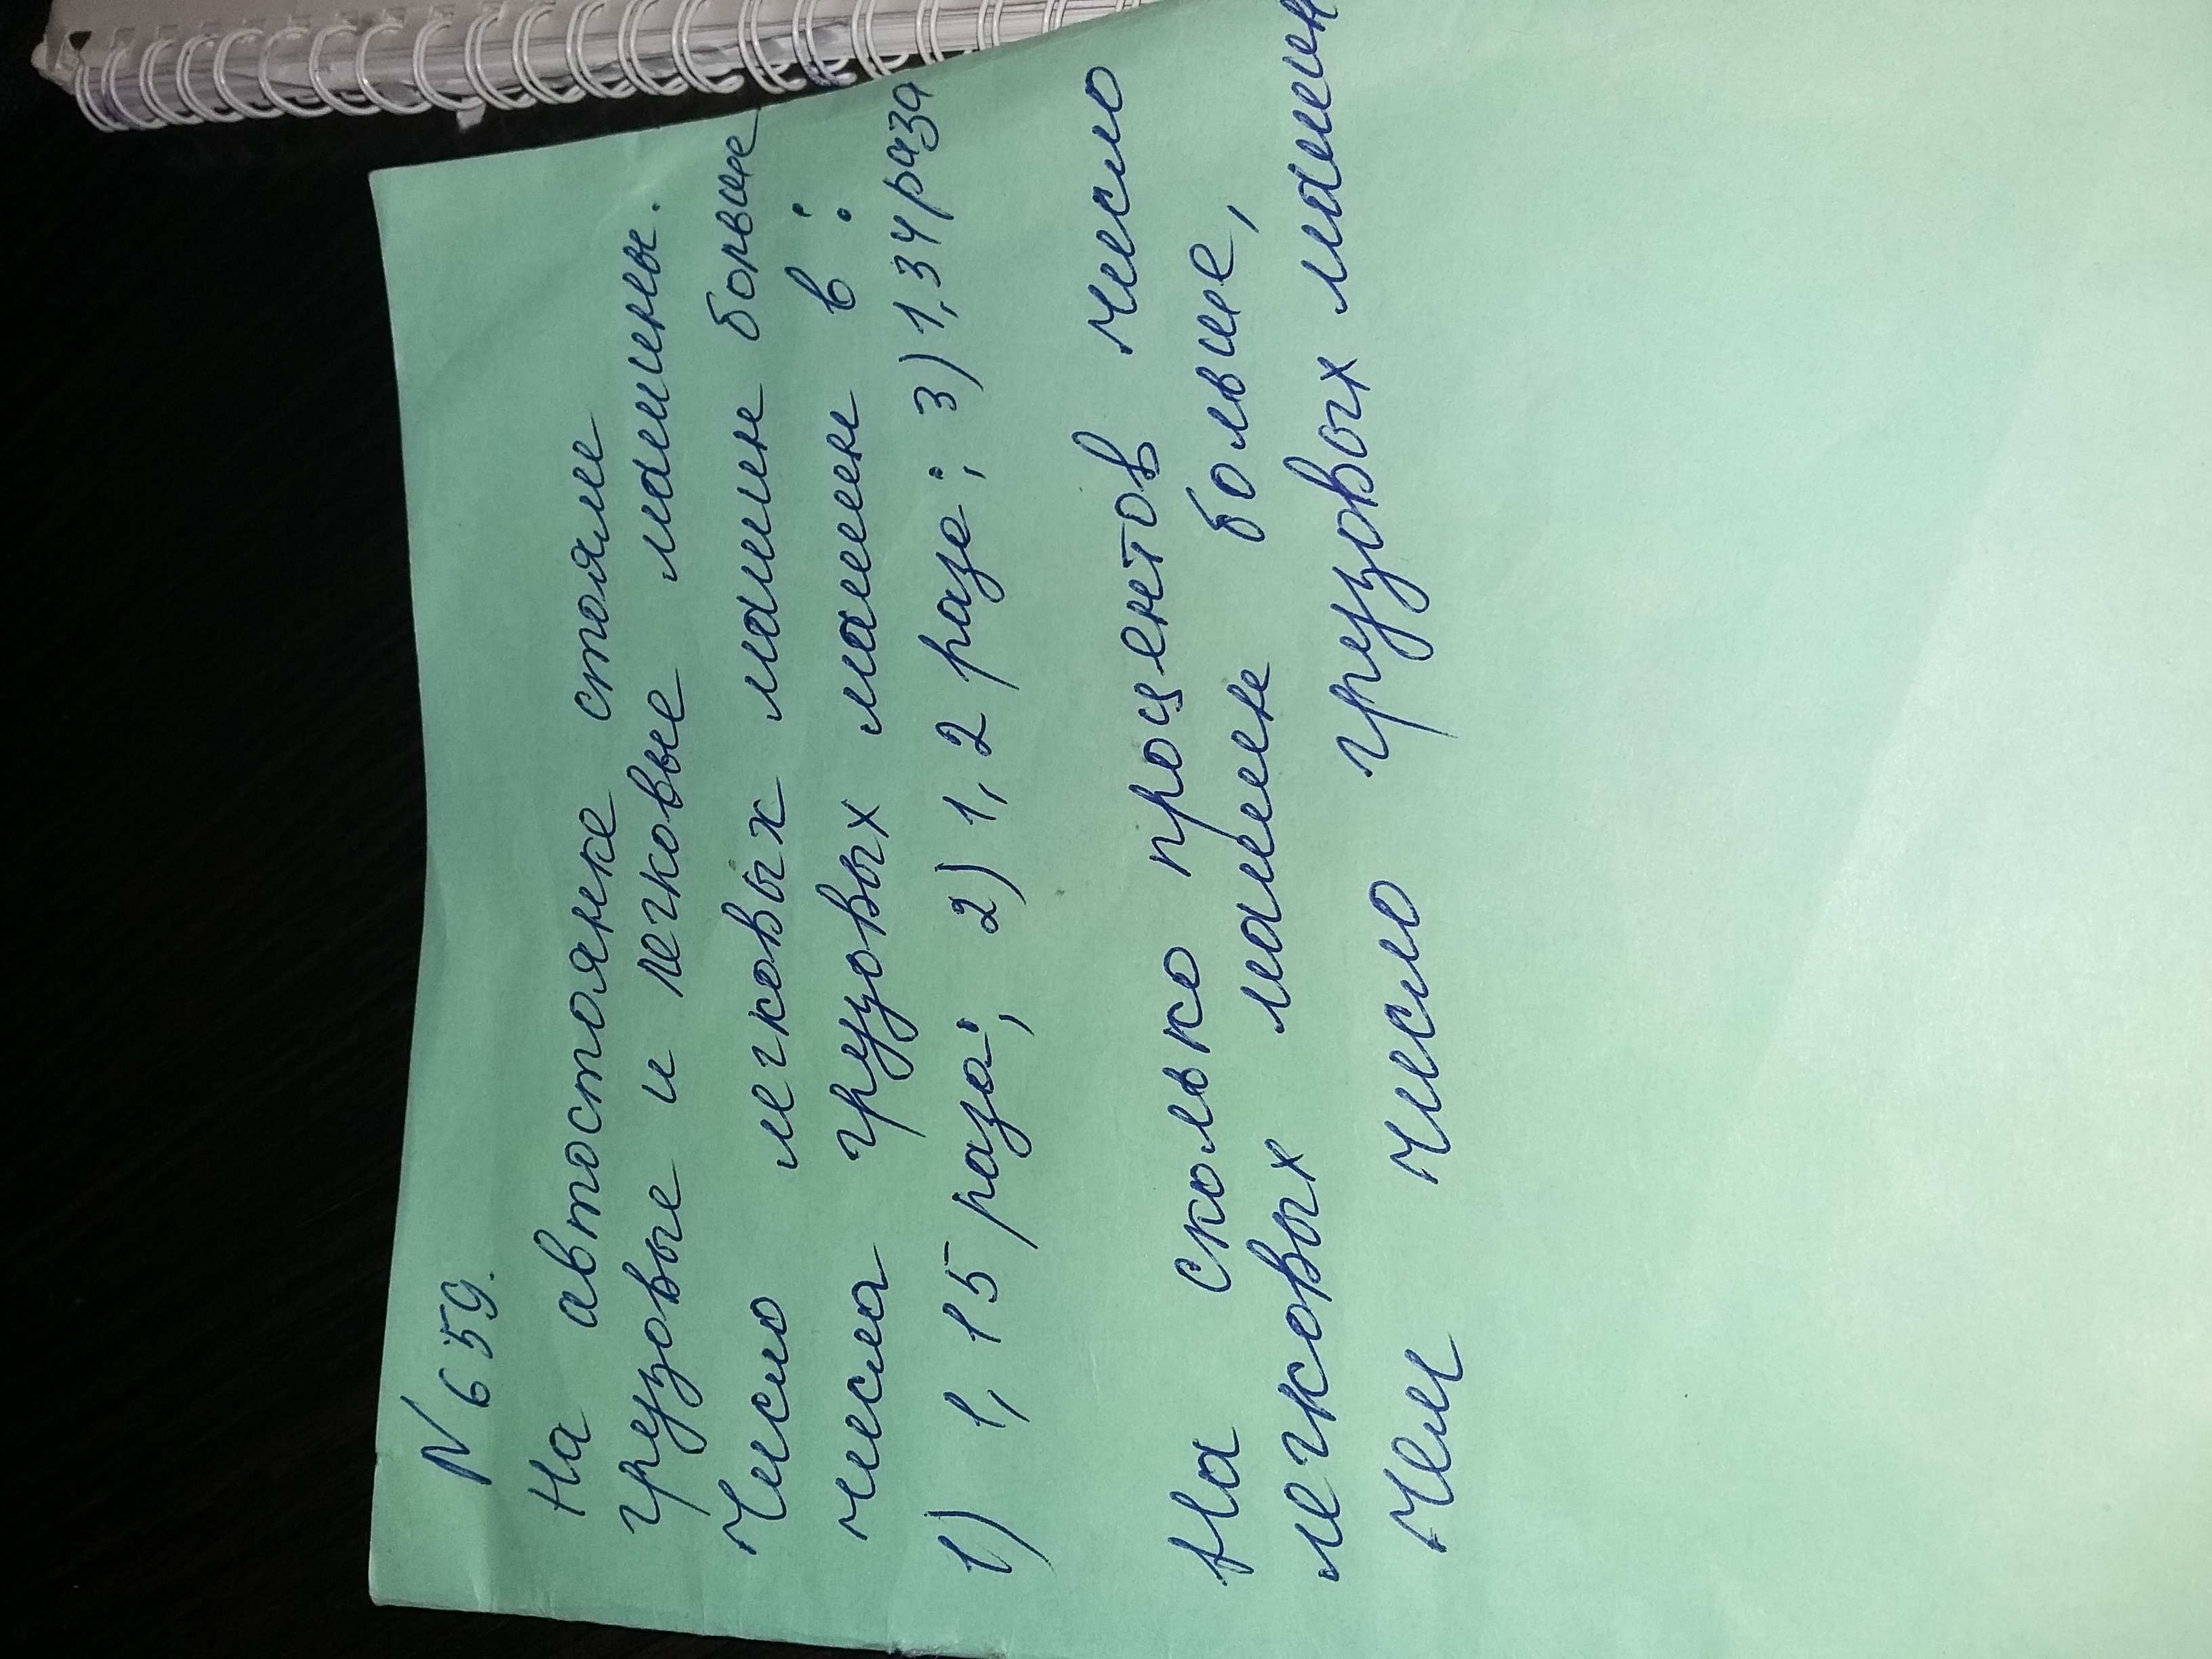 N 659.
На автостоянке стояли
грузовые и легковые машины.
Число легковых машин больше
числа грузовых машин в :
1) 1,15 раза; 2) 1,2 раза; 3) 1,34 раза
На сколько процентов число
легковых машин больше,
чем число грузовых машин